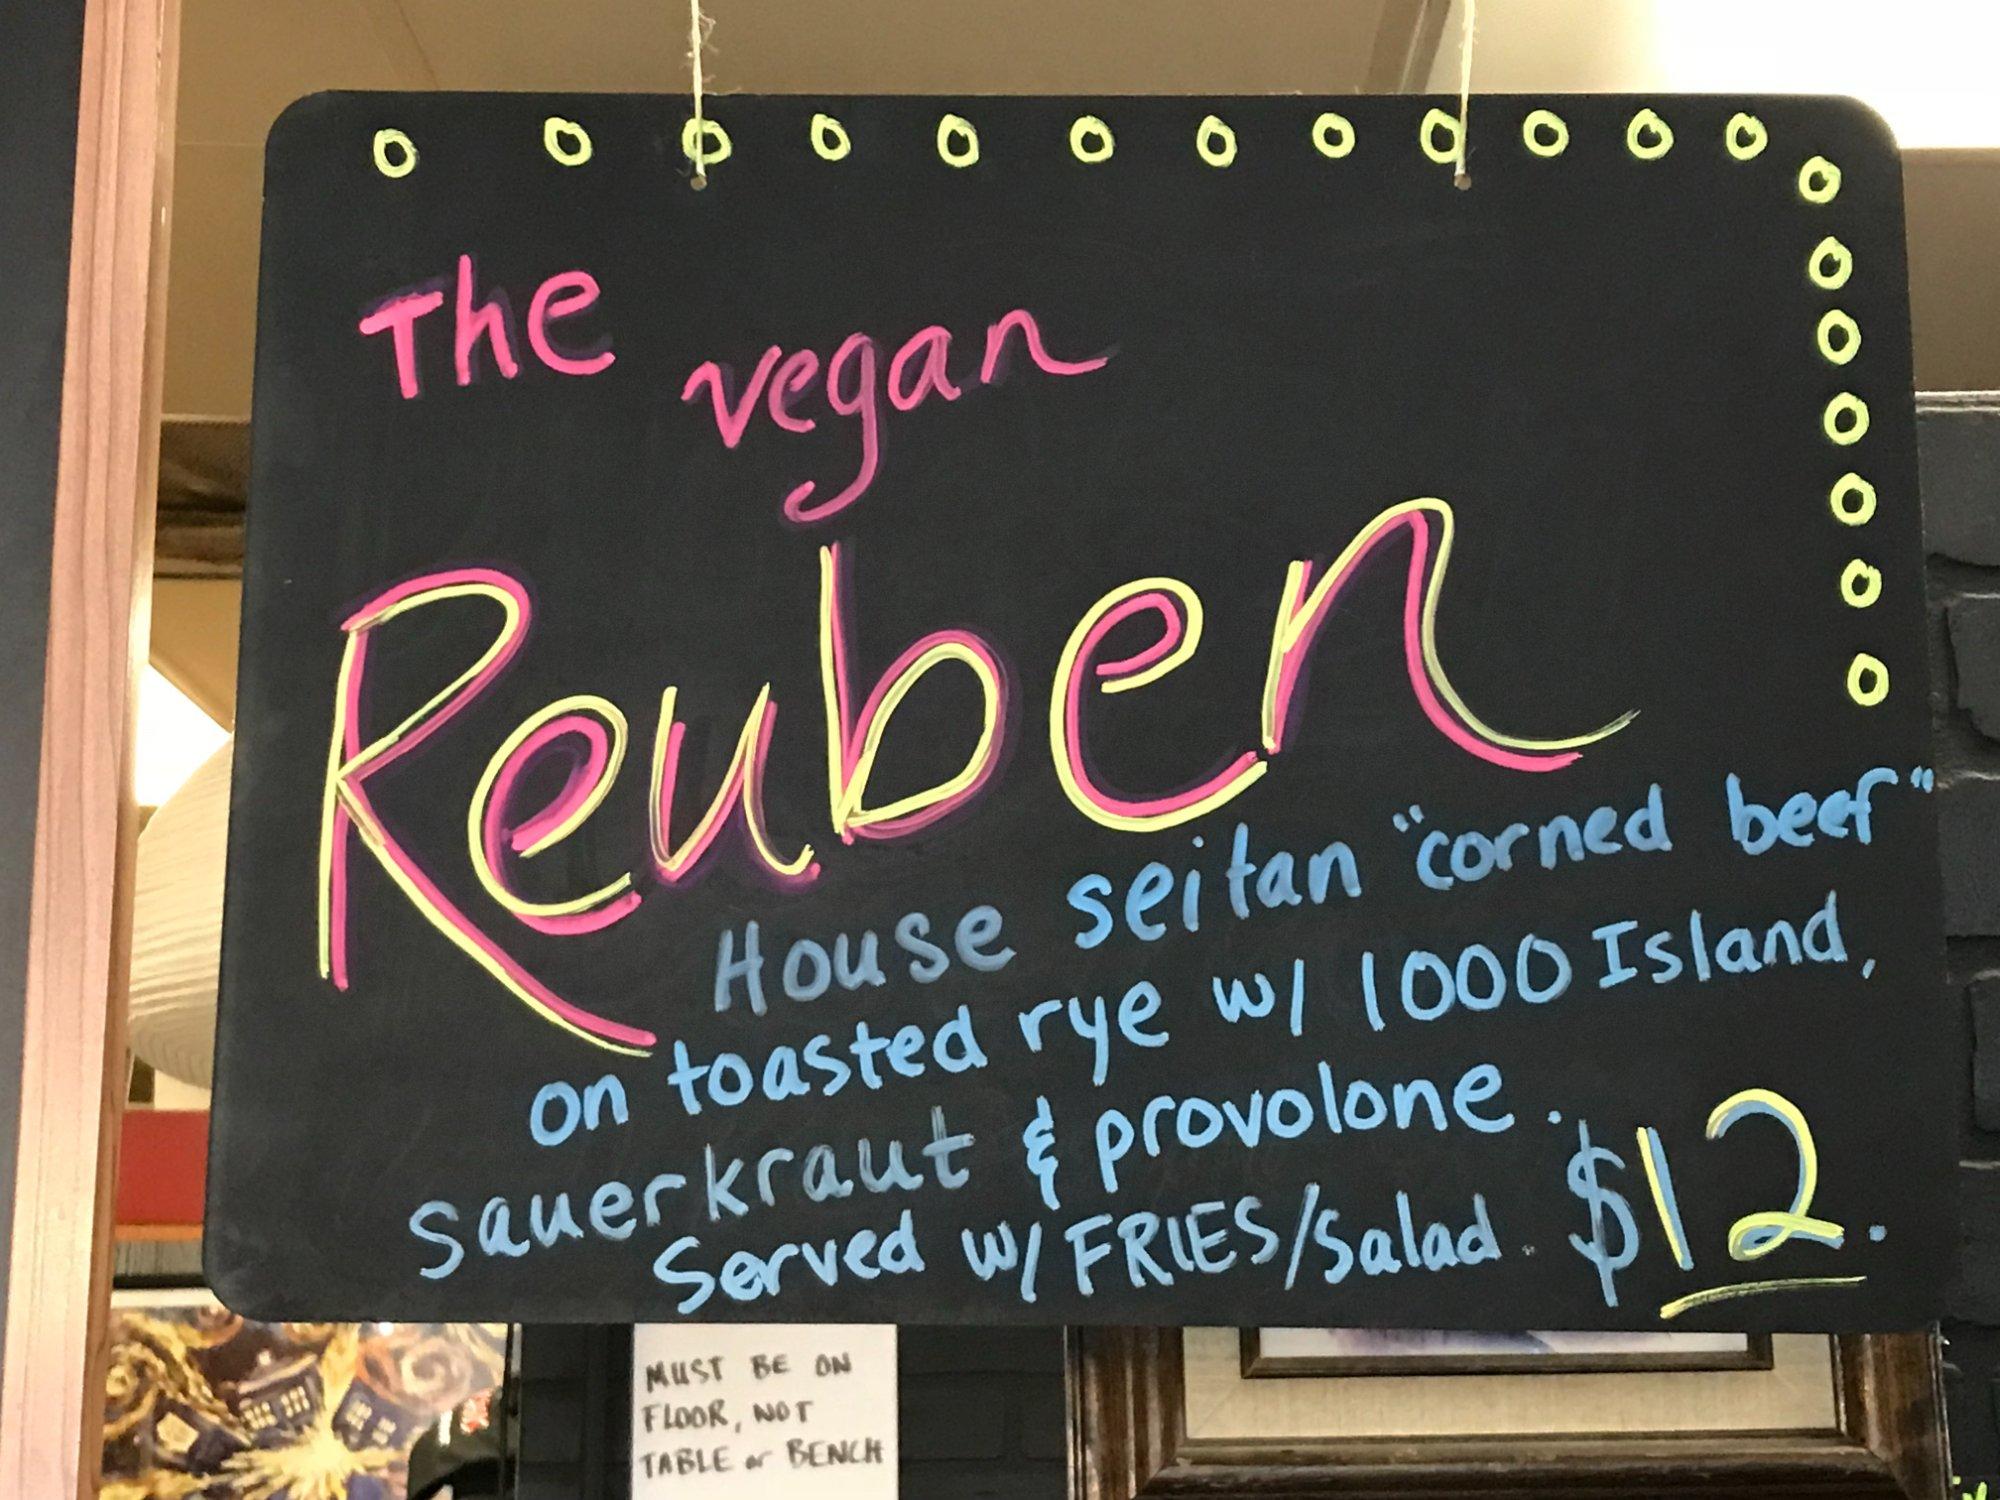 The vegan
Reuben
House seitan "corned beef"
on toasted rye w/ 1000 Island,
sauerkraut & provolone.
Served w/ FRIES/Salad. $12.
MUST BE ON
FLOOR, NOT
TABLE or BENCH